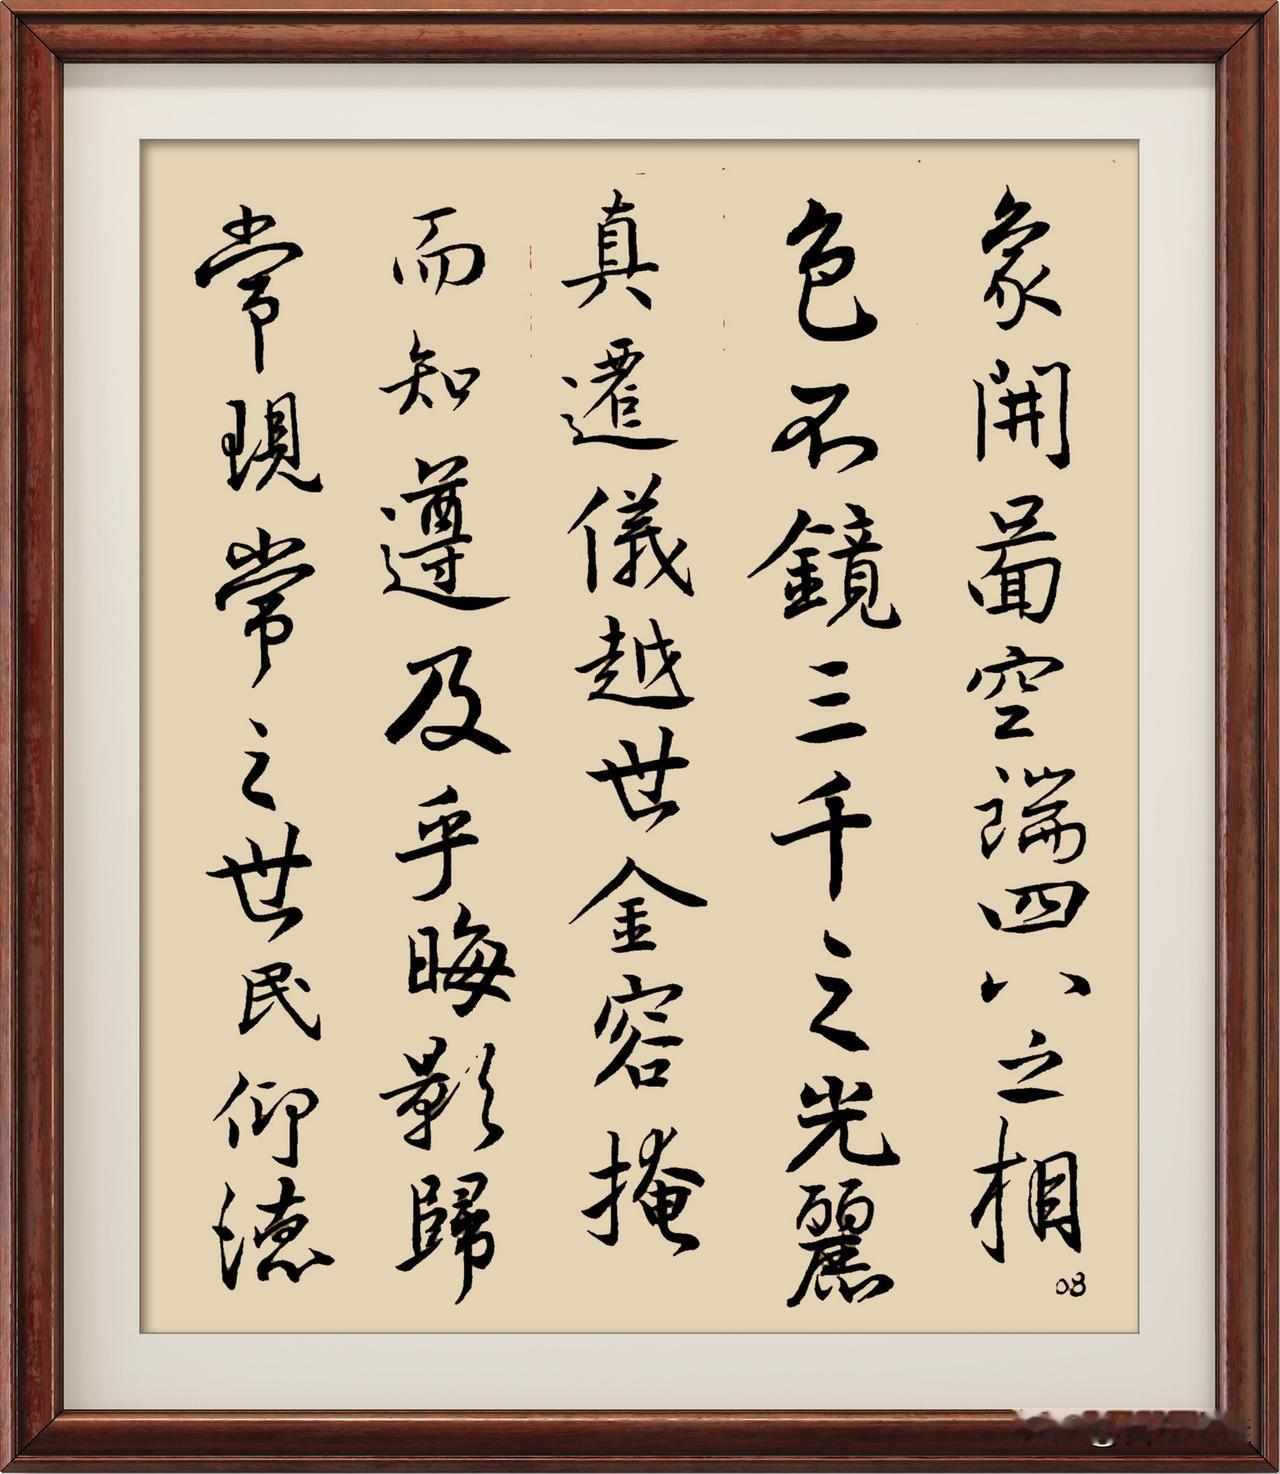 常現常之世民仰德
而知遵及乎晦影歸
真遷儀越世金容掩
色不鏡三千之光麗
象開圖空端四八之相
08